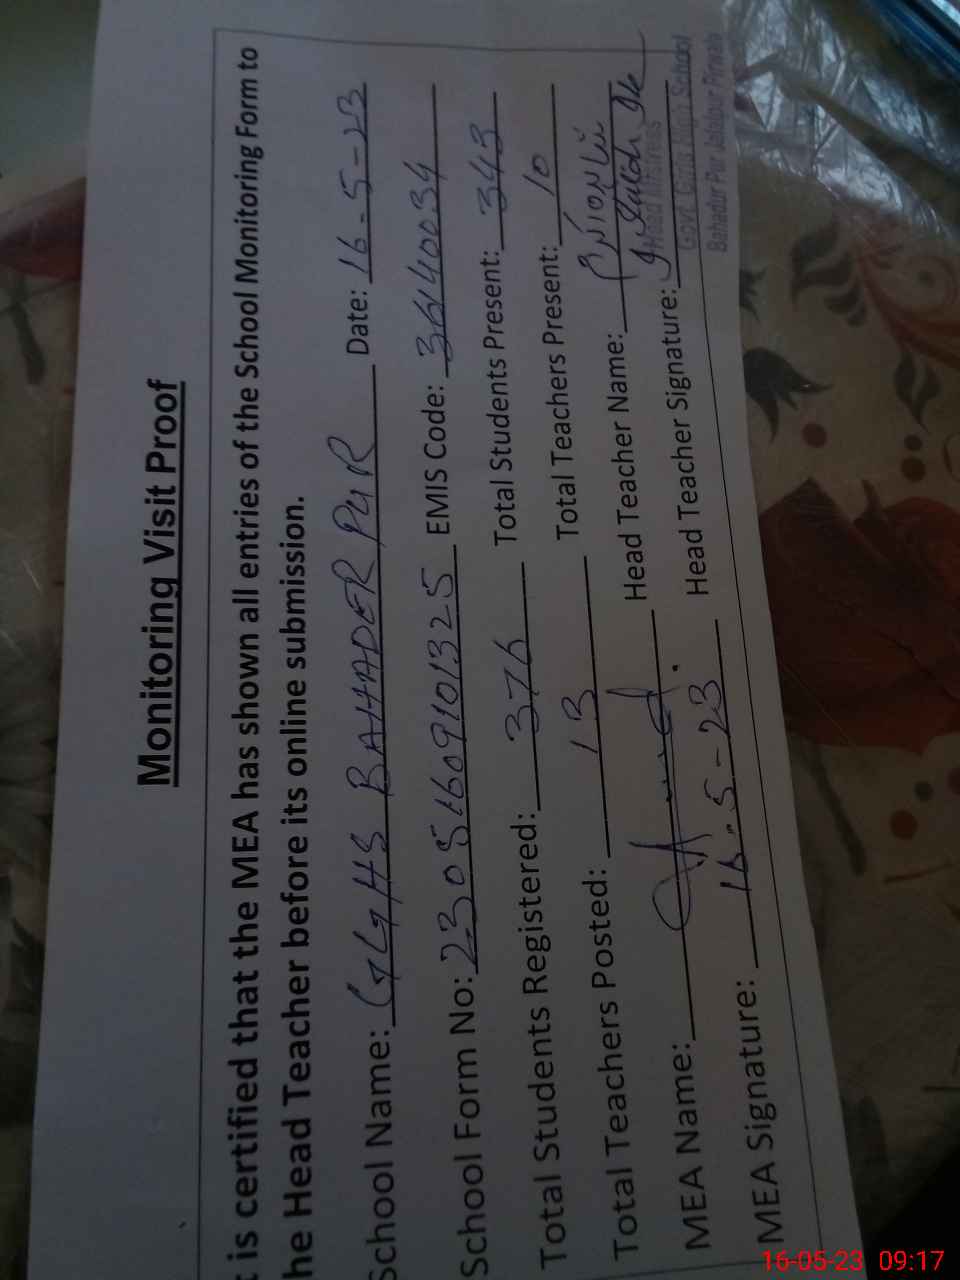 Monitoring Visit Proof
t is certified that the MEA has shown all entries of the School Monitoring Form to
he Head Teacher before its online submission.
School Name: GGHS BAHADER PUR Date: 16-5-23
School Form No: 23051609101325 EMIS Code: 36140034
Total Students Registered: 376 Total Students Present: 343
Total Teachers Posted: 13 Total Teachers Present: 10
MEA Name: Head Teacher Name:
MEA Signature: 16-5-23 Head Teacher Signature:
Head Mistress
Govt. Girls High School
Bahadur Pur Jalalpur Pirwala
16-05-23 09:17